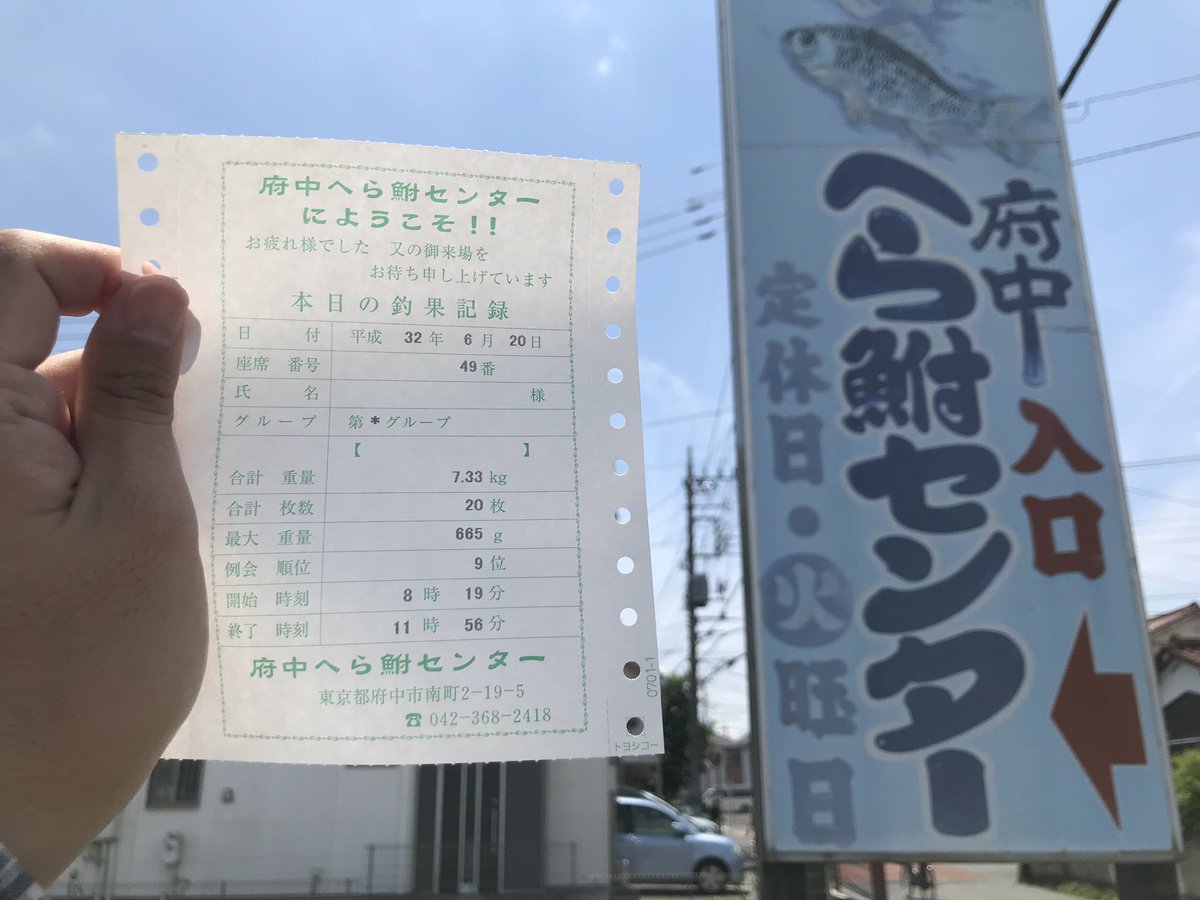 府中へら鮒センター
にようこそ!!
お疲れ様でした 又の御来場を
お待ち申し上げています
本日の釣果記録
日付 平成 32年 6月 20日
座席 番号 49番
氏名 様
グループ 第*グループ
【 】
合計 重量 7.33 kg
合計 枚数 20 枚
最大 重量 665 g
例会 順位 9 位
開始 時刻 8 時 19 分
終了 時刻 11 時 56 分
府中へら鮒センター
東京都府中市南町2-19-5
☎ 042-368-2418
0701-1
トヨシコー
府中
へら鮒センター
入口
定休日・火曜日